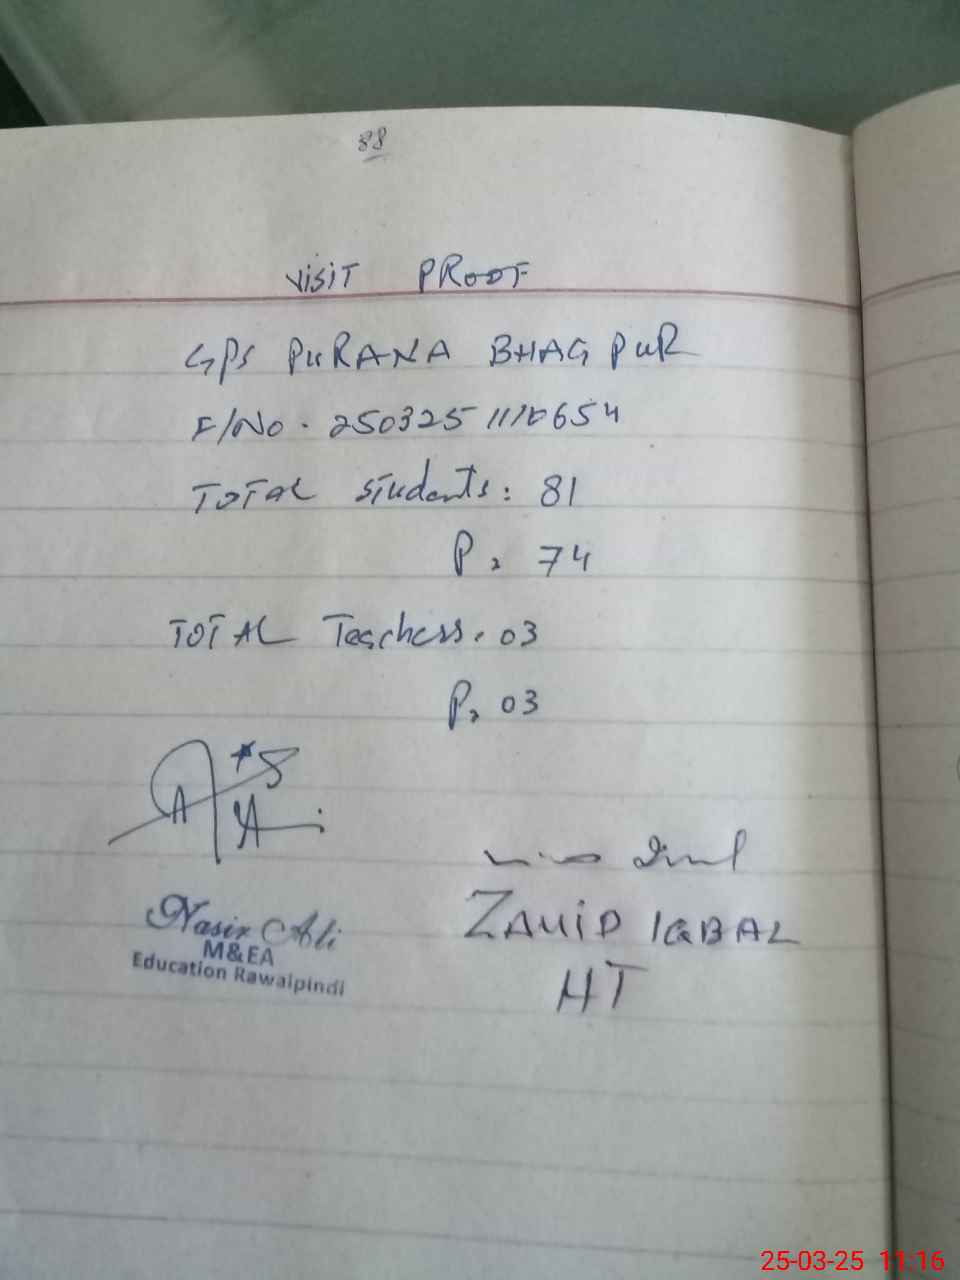 88
VISIT PROOF
GPS PURANA BHAGPUR
F/No. 2503251110654
TOTAL Students: 81
P. 74
TOTAL Teachers. 03
P. 03
Nasir Ali
M&EA
Education Rawalpindi
ZAHID IQBAL
HT
25-03-25 11:16